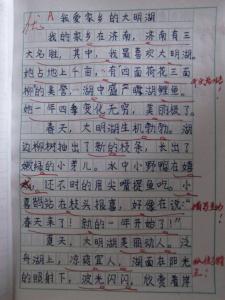 优 A
我爱家乡的大明湖
我的家乡在济南，济南有三
大名胜，其中，我最喜欢大明湖。
她占地上千亩，有四面荷花三面
柳的美誉，湖中盛产
湖鲤鱼。
她一年四季变化无穷，美丽极了。
春天，大明湖生机勃勃。湖
边柳树抽出了新的枝条，长出了
嫩绿的小芽儿。水中小野鸭在嬉
戏，还不时的用尖嘴捉鱼吃。小
喜鹊站在枝头报喜，好像在说："
春天来了！新的一年开始了！"
夏天，大明湖美丽动人。泛
舟湖上，凉爽宜人。湖面在阳光
的照射下，波光闪闪。欣赏着岸